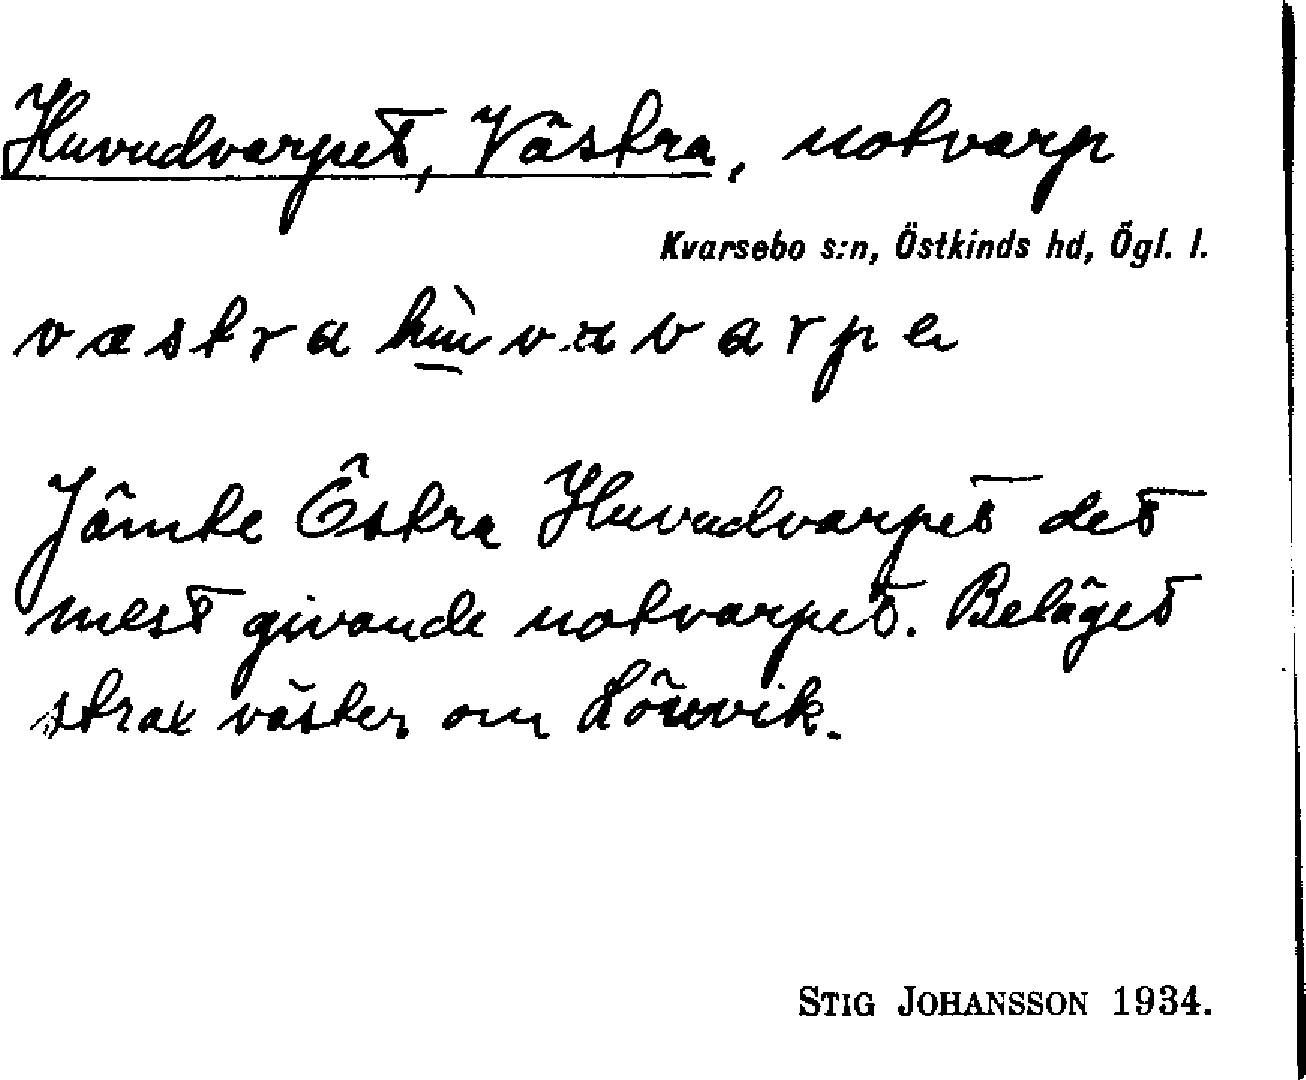 Huvudvarpet, Västra, notvarp
Kvarsebo s:n, Östkinds hd, Ögl. l.
Jämte Östra Huvudvarpet det
mest givande notvarpet. Beläget
strax väster om Lövvik.
STIG JOHANSSON 1934.